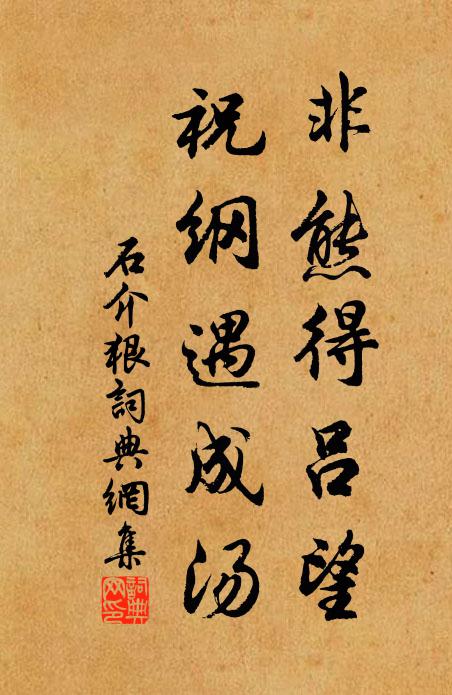 非熊得吕望
祝纲遇成汤
石介狠詞典網集
詞典网印